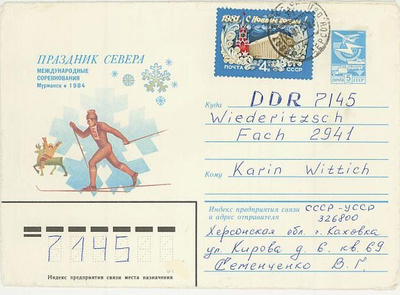 ПРАЗДНИК СЕВЕРА
МЕЖДУНАРОДНЫЕ
СОРЕВНОВАНИЯ
Мурманск • 1984
1981 С Новым годом!
ПОЧТА 4К СССР
Куда DDR 7145
Wiederitzsch
Fach 2941
Кому Karin Wittich
Индекс предприятия связи
и адрес отправителя
СССР-УССР
326800
Херсонская обл. г. Каховка
ул. Кирова д. 6. кв. 69
Семенченко В. Г.
7145
Индекс предприятия связи места назначения